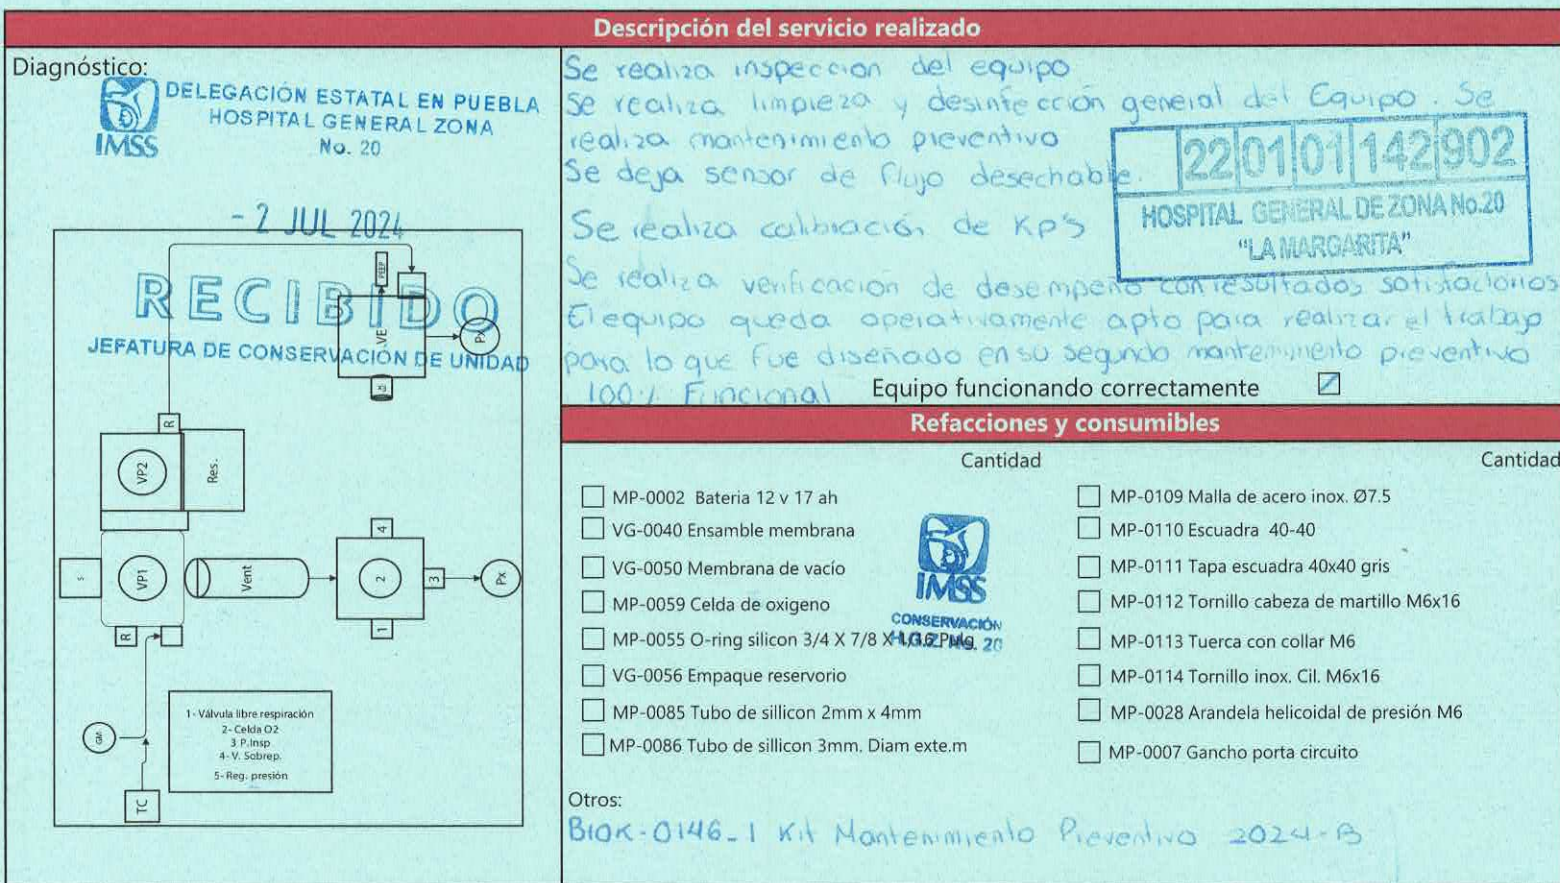 Descripción del servicio realizado
Diagnóstico:
IMSS
DELEGACIÓN ESTATAL EN PUEBLA
HOSPITAL GENERAL ZONA
No. 20
- 2 JUL 2024
RECIBIDO
JEFATURA DE CONSERVACIÓN DE UNIDAD
PEEP
VE
PX
R
VP2
Res.
VP1
Vent
4
2
3
1
PX
R
GM
TC
1- Válvula libre respiración
2- Celda O2
3 P.Insp
4- V. Sobrep.
5- Reg. presión
Se realiza inspeccion del equipo
Se realiza limpieza y desinfección general del Equipo. Se
realiza mantenimiento preventivo
Se deja sensor de flujo desechable.
Se realiza calibración de KP'S
Se realiza verificación de desempeño con resultados satisfactorios
El equipo queda operativamente apto para realizar el trabajo
para lo que fue diseñado en su segundo mantenimiento preventivo
100% Funcional
22 01 01 142 902
HOSPITAL GENERAL DE ZONA No.20
"LA MARGARITA"
Equipo funcionando correctamente
Refacciones y consumibles
Cantidad
MP-0002 Bateria 12 v 17 ah
VG-0040 Ensamble membrana
VG-0050 Membrana de vacío
MP-0059 Celda de oxigeno
MP-0055 O-ring silicon 3/4 X 7/8 X 1/16 Pulg.
VG-0056 Empaque reservorio
MP-0085 Tubo de sillicon 2mm x 4mm
MP-0086 Tubo de sillicon 3mm. Diam exte.m
IMSS
CONSERVACIÓN
H.G.Z. No. 20
Cantidad
MP-0109 Malla de acero inox. Ø7.5
MP-0110 Escuadra 40-40
MP-0111 Tapa escuadra 40x40 gris
MP-0112 Tornillo cabeza de martillo M6x16
MP-0113 Tuerca con collar M6
MP-0114 Tornillo inox. Cil. M6x16
MP-0028 Arandela helicoidal de presión M6
MP-0007 Gancho porta circuito
Otros:
BIOK-0146-1 Kit Mantenimiento Preventivo 2024-B